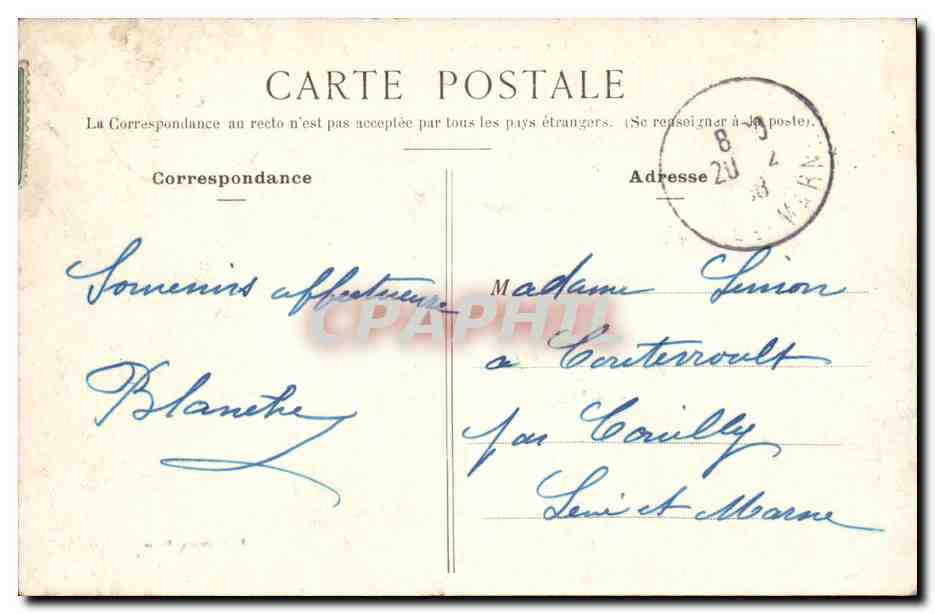 CARTE POSTALE
La Correspondance au recto n'est pas acceptée par tous les pays étrangers. (Se renseigner à la poste).
Correspondance
Souvenirs affectueux
Blanche
Adresse
8
20 2
MARN
Madame Simon
a Couterroult
par Couilly
Seine et Marne
CPAPHIL